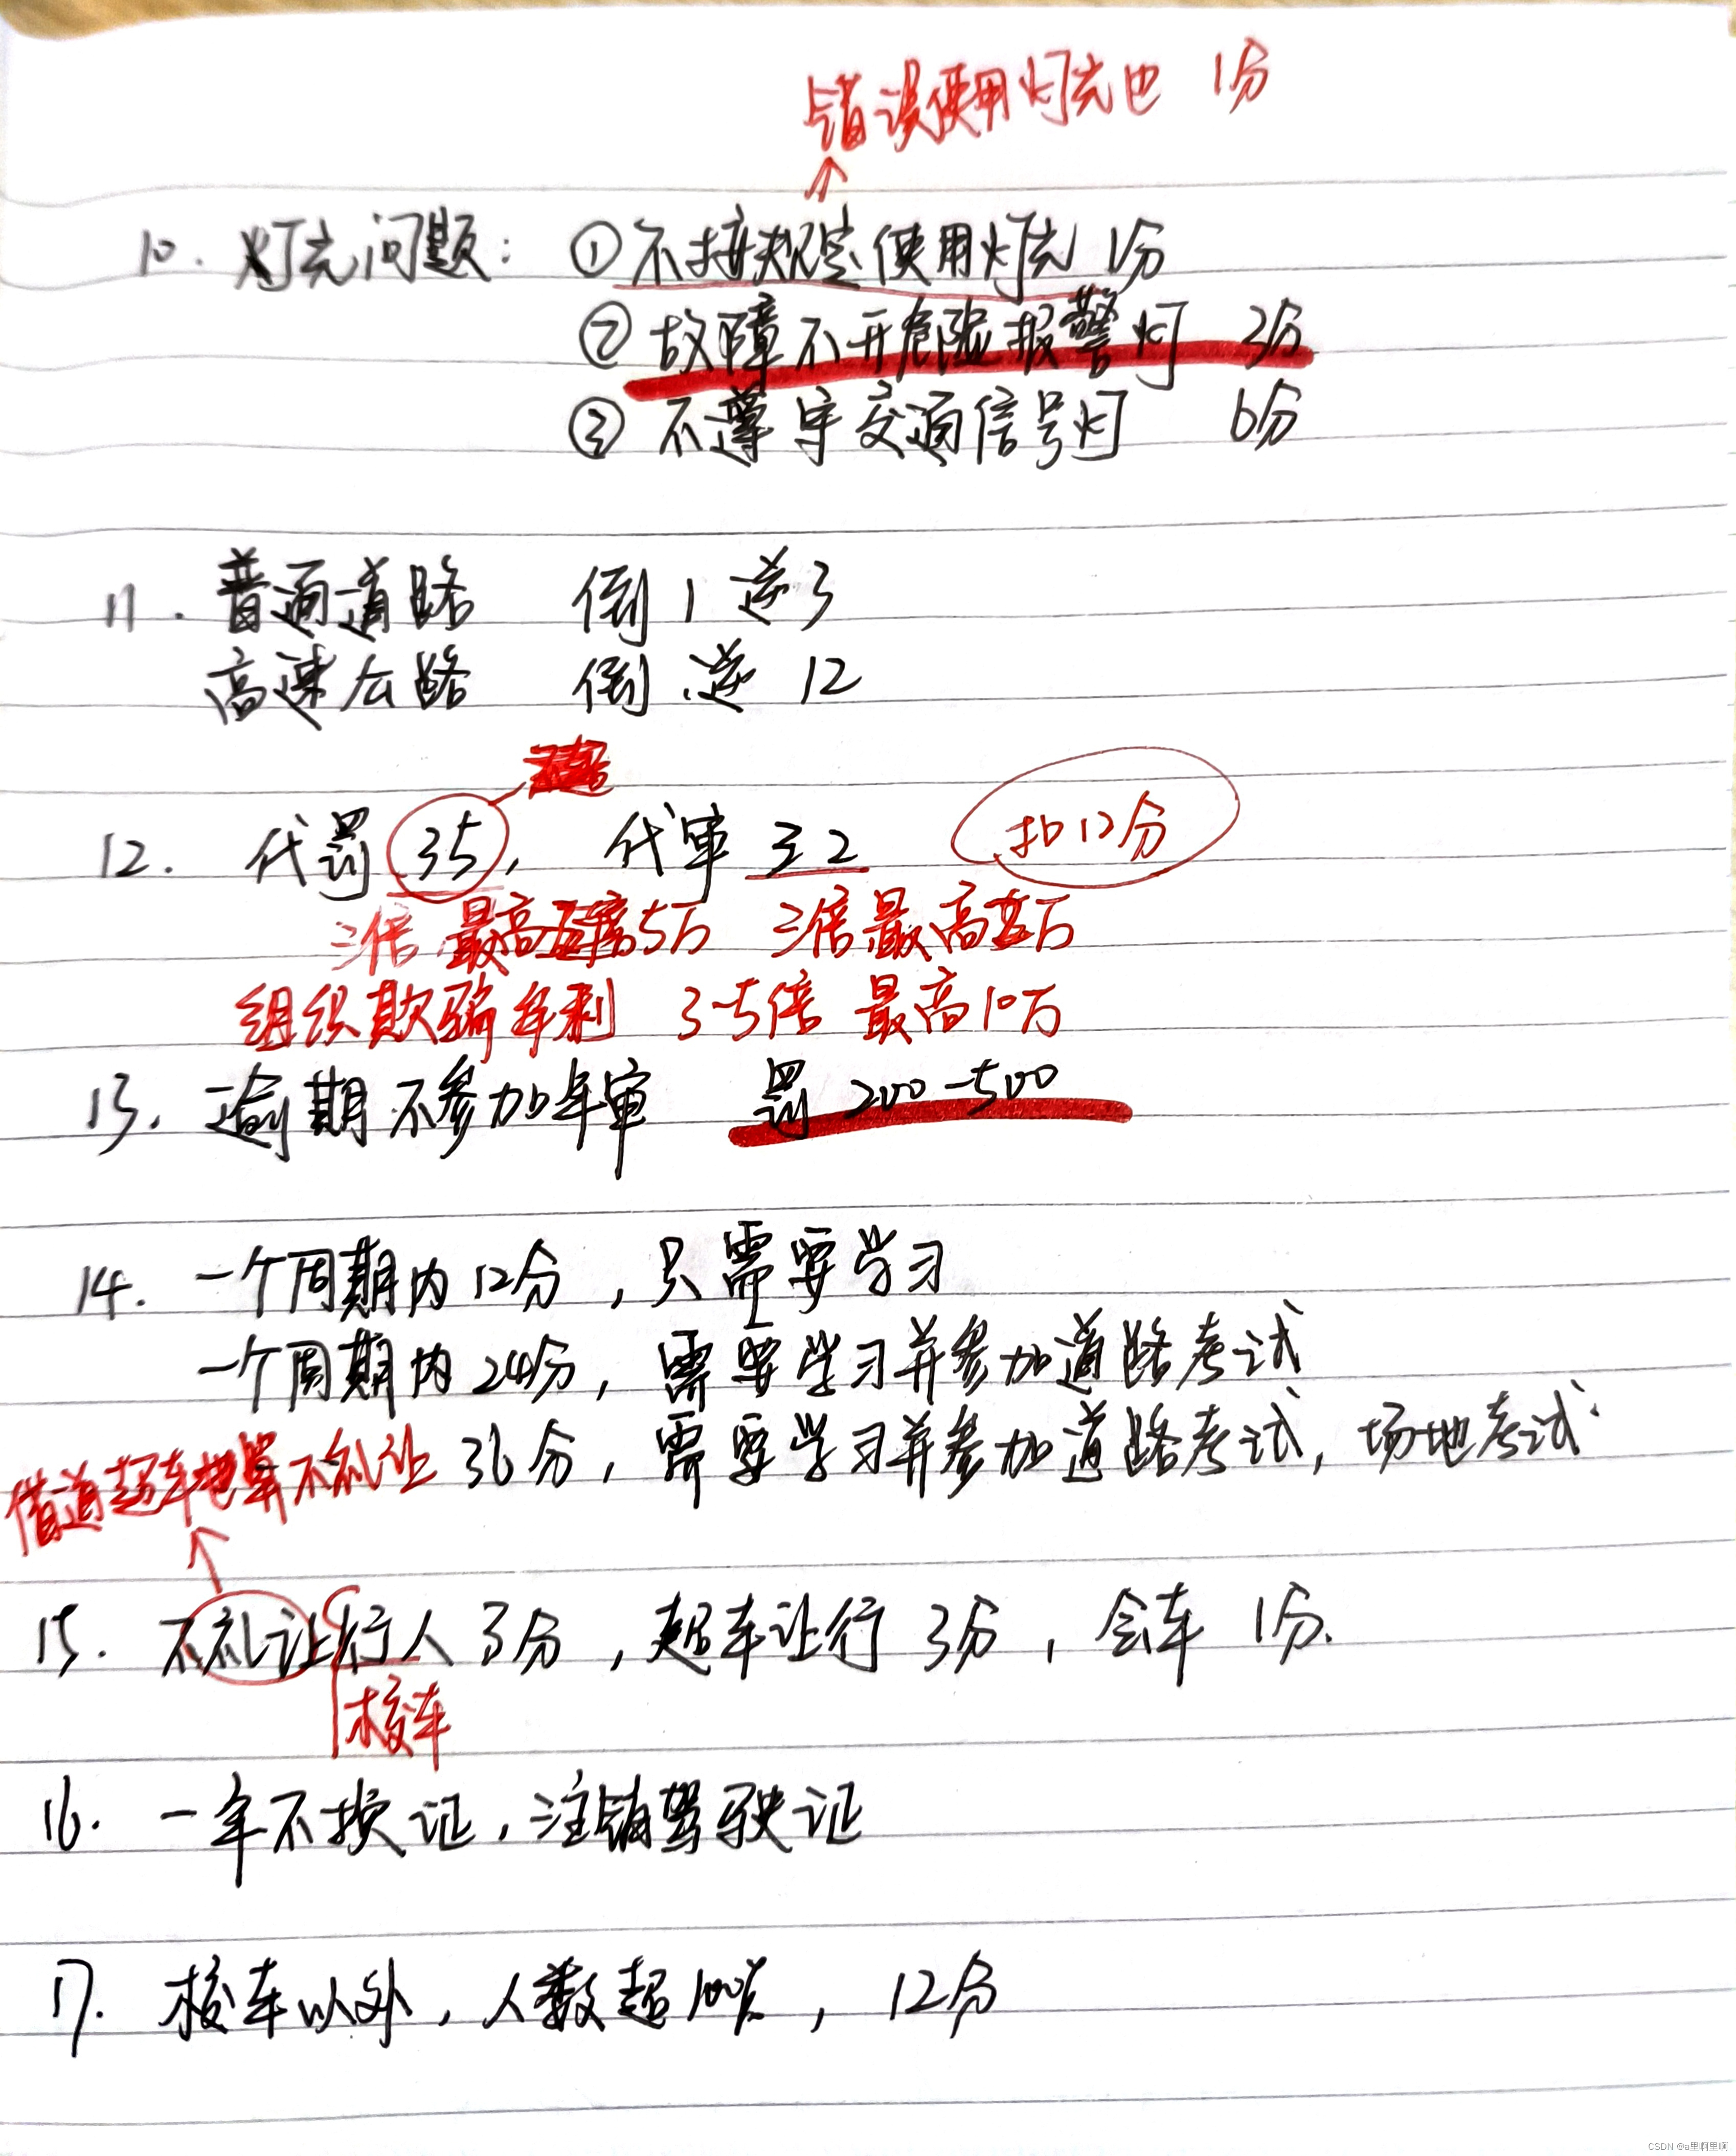 错误使用灯光也 1分
10. 灯光问题: ①不按规定使用灯光 1分
② 故障不开危险报警灯 3分
③ 不遵守交通信号灯 6分
11. 普通道路 倒1逆3
高速公路 倒.逆 12
12. 代罚 35, 代审 32 扣12分
三倍 最高5万 三倍最高2万
组织欺骗牟利 3-5倍 最高10万
13. 逾期不参加年审 罚 200-500
14. 一个周期内12分,只需要学习
一个周期内24分,需要学习并参加道路考试
36分,需要学习并参加道路考试,场地考试.
借道超车也算不礼让
15. 不礼让行人3分,超车让行 3分,会车 1分.
校车
16. 一年不换证,注销驾驶证
17. 校车以外,人数超100%, 12分
CSDN @a里啊里啊